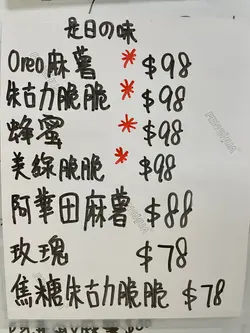 是日の味
Oreo麻薯 * $98
朱古力脆脆 * $98
蜂蜜 * $98
美綠脆脆 * $98
阿華田麻薯 $88
玫瑰 $78
焦糖朱古力脆脆 $78